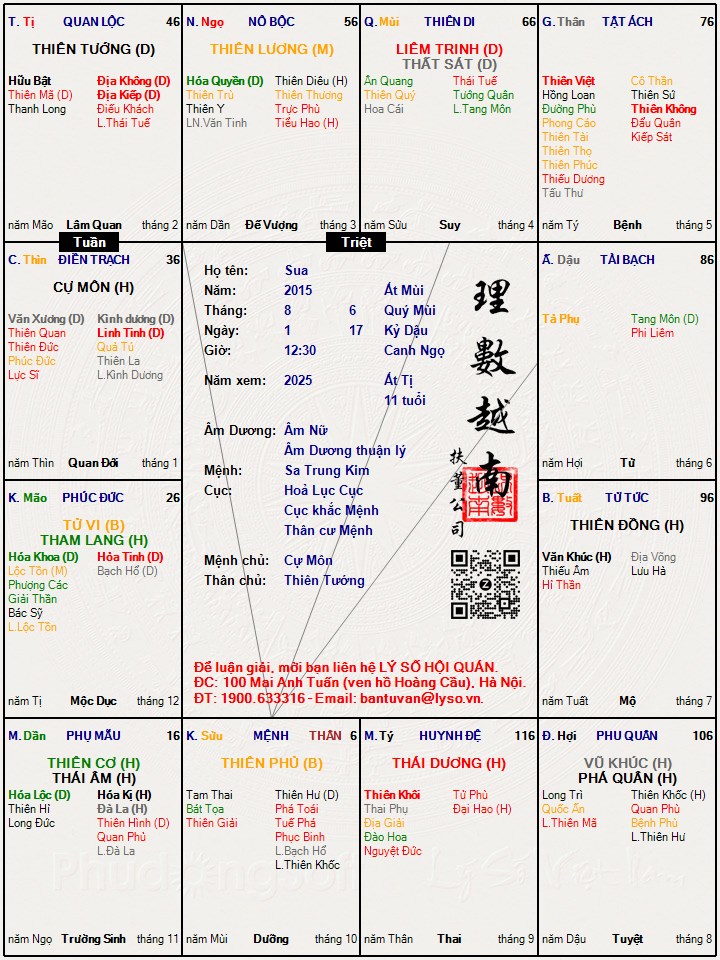 T. Tị QUAN LỘC 46
THIÊN TƯỚNG (D)
Hữu Bật Địa Không (D)
Thiên Mã (D) Địa Kiếp (D)
Thanh Long Điếu Khách
L.Thái Tuế
năm Mão Lâm Quan tháng 2
N. Ngọ NÔ BỘC 56
THIÊN LƯƠNG (M)
Hóa Quyền (D) Thiên Diêu (H)
Thiên Trù Thiên Thương
Thiên Y Trực Phù
LN.Văn Tinh Tiểu Hao (H)
năm Dần Đế Vượng tháng 3
Q. Mùi THIÊN DI 66
LIÊM TRINH (D)
THẤT SÁT (D)
Ân Quang Thái Tuế
Thiên Quý Tướng Quân
Hoa Cái L.Tang Môn
năm Sửu Suy tháng 4
G. Thân TẬT ÁCH 76
Thiên Việt Cô Thần
Hồng Loan Thiên Sứ
Đường Phù Thiên Không
Phong Cáo Đẩu Quân
Thiên Tài Kiếp Sát
Thiên Thọ
Thiên Phúc
Thiếu Dương
Tấu Thư
năm Tý Bệnh tháng 5
Tuần
Triệt
C. Thìn ĐIỀN TRẠCH 36
CỰ MÔN (H)
Văn Xương (D) Kình dương (D)
Thiên Quan Linh Tinh (D)
Thiên Đức Quả Tú
Phúc Đức Thiên La
Lực Sĩ L.Kình Dương
năm Thìn Quan Đới tháng 1
Họ tên: Sua
Năm: 2015 Ất Mùi
Tháng: 8 6 Quý Mùi
Ngày: 1 17 Kỷ Dậu
Giờ: 12:30 Canh Ngọ
Năm xem: 2025 Ất Tị
11 tuổi
Âm Dương: Âm Nữ
Âm Dương thuận lý
Mệnh: Sa Trung Kim
Cục: Hoả Lục Cục
Cục khắc Mệnh
Thân cư Mệnh
Mệnh chủ: Cự Môn
Thân chủ: Thiên Tướng
理數越南
扶董公司
Để luận giải, mời bạn liên hệ LÝ SỐ HỘI QUÁN.
ĐC: 100 Mai Anh Tuấn (ven hồ Hoàng Cầu), Hà Nội.
ĐT: 1900.633316 - Email: bantuvan@lyso.vn.
Ấ. Dậu TÀI BẠCH 86
Tả Phụ Tang Môn (D)
Phi Liêm
năm Hợi Tử tháng 6
K. Mão PHÚC ĐỨC 26
TỬ VI (B)
THAM LANG (H)
Hóa Khoa (D) Hỏa Tinh (D)
Lộc Tồn (M) Bạch Hổ (D)
Phượng Các
Giải Thần
Bác Sỹ
L.Lộc Tồn
năm Tị Mộc Dục tháng 12
B. Tuất TỬ TỨC 96
THIÊN ĐỒNG (H)
Văn Khúc (H) Địa Võng
Thiếu Âm Lưu Hà
Hỉ Thần
năm Tuất Mộ tháng 7
M. Dần PHỤ MẪU 16
THIÊN CƠ (H)
THÁI ÂM (H)
Hóa Lộc (D) Hóa Kị (H)
Thiên Hỉ Đà La (H)
Long Đức Thiên Hình (D)
Quan Phủ
L.Đà La
năm Ngọ Trường Sinh tháng 11
K. Sửu MỆNH THÂN 6
THIÊN PHỦ (B)
Tam Thai Thiên Hư (D)
Bát Tọa Phá Toái
Thiên Giải Tuế Phá
Phục Binh
L.Bạch Hổ
L.Thiên Khốc
năm Mùi Dưỡng tháng 10
M. Tý HUYNH ĐỆ 116
THÁI DƯƠNG (H)
Thiên Khôi Tử Phù
Thai Phụ Đại Hao (H)
Địa Giải
Đào Hoa
Nguyệt Đức
năm Thân Thai tháng 9
Đ. Hợi PHU QUÂN 106
VŨ KHÚC (H)
PHÁ QUÂN (H)
Long Trì Thiên Khốc (H)
Quốc Ấn Quan Phù
L.Thiên Mã Bệnh Phù
L.Thiên Hư
năm Dậu Tuyệt tháng 8